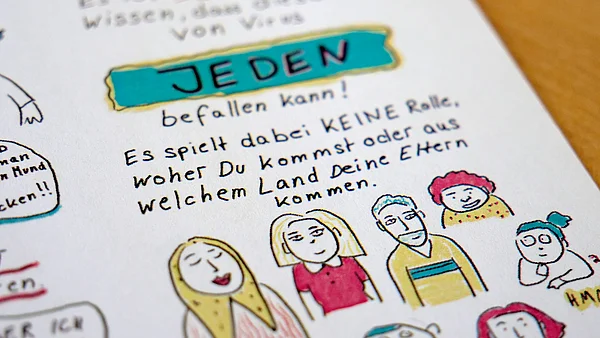 wissen, dass
von Virus
JEDEN
befallen kann!
Es spielt dabei KEINE Rolle,
woher Du kommst oder aus
welchem Land Deine Eltern
kommen.
man
Mund
cken!!
en.
ER ICH
HMM